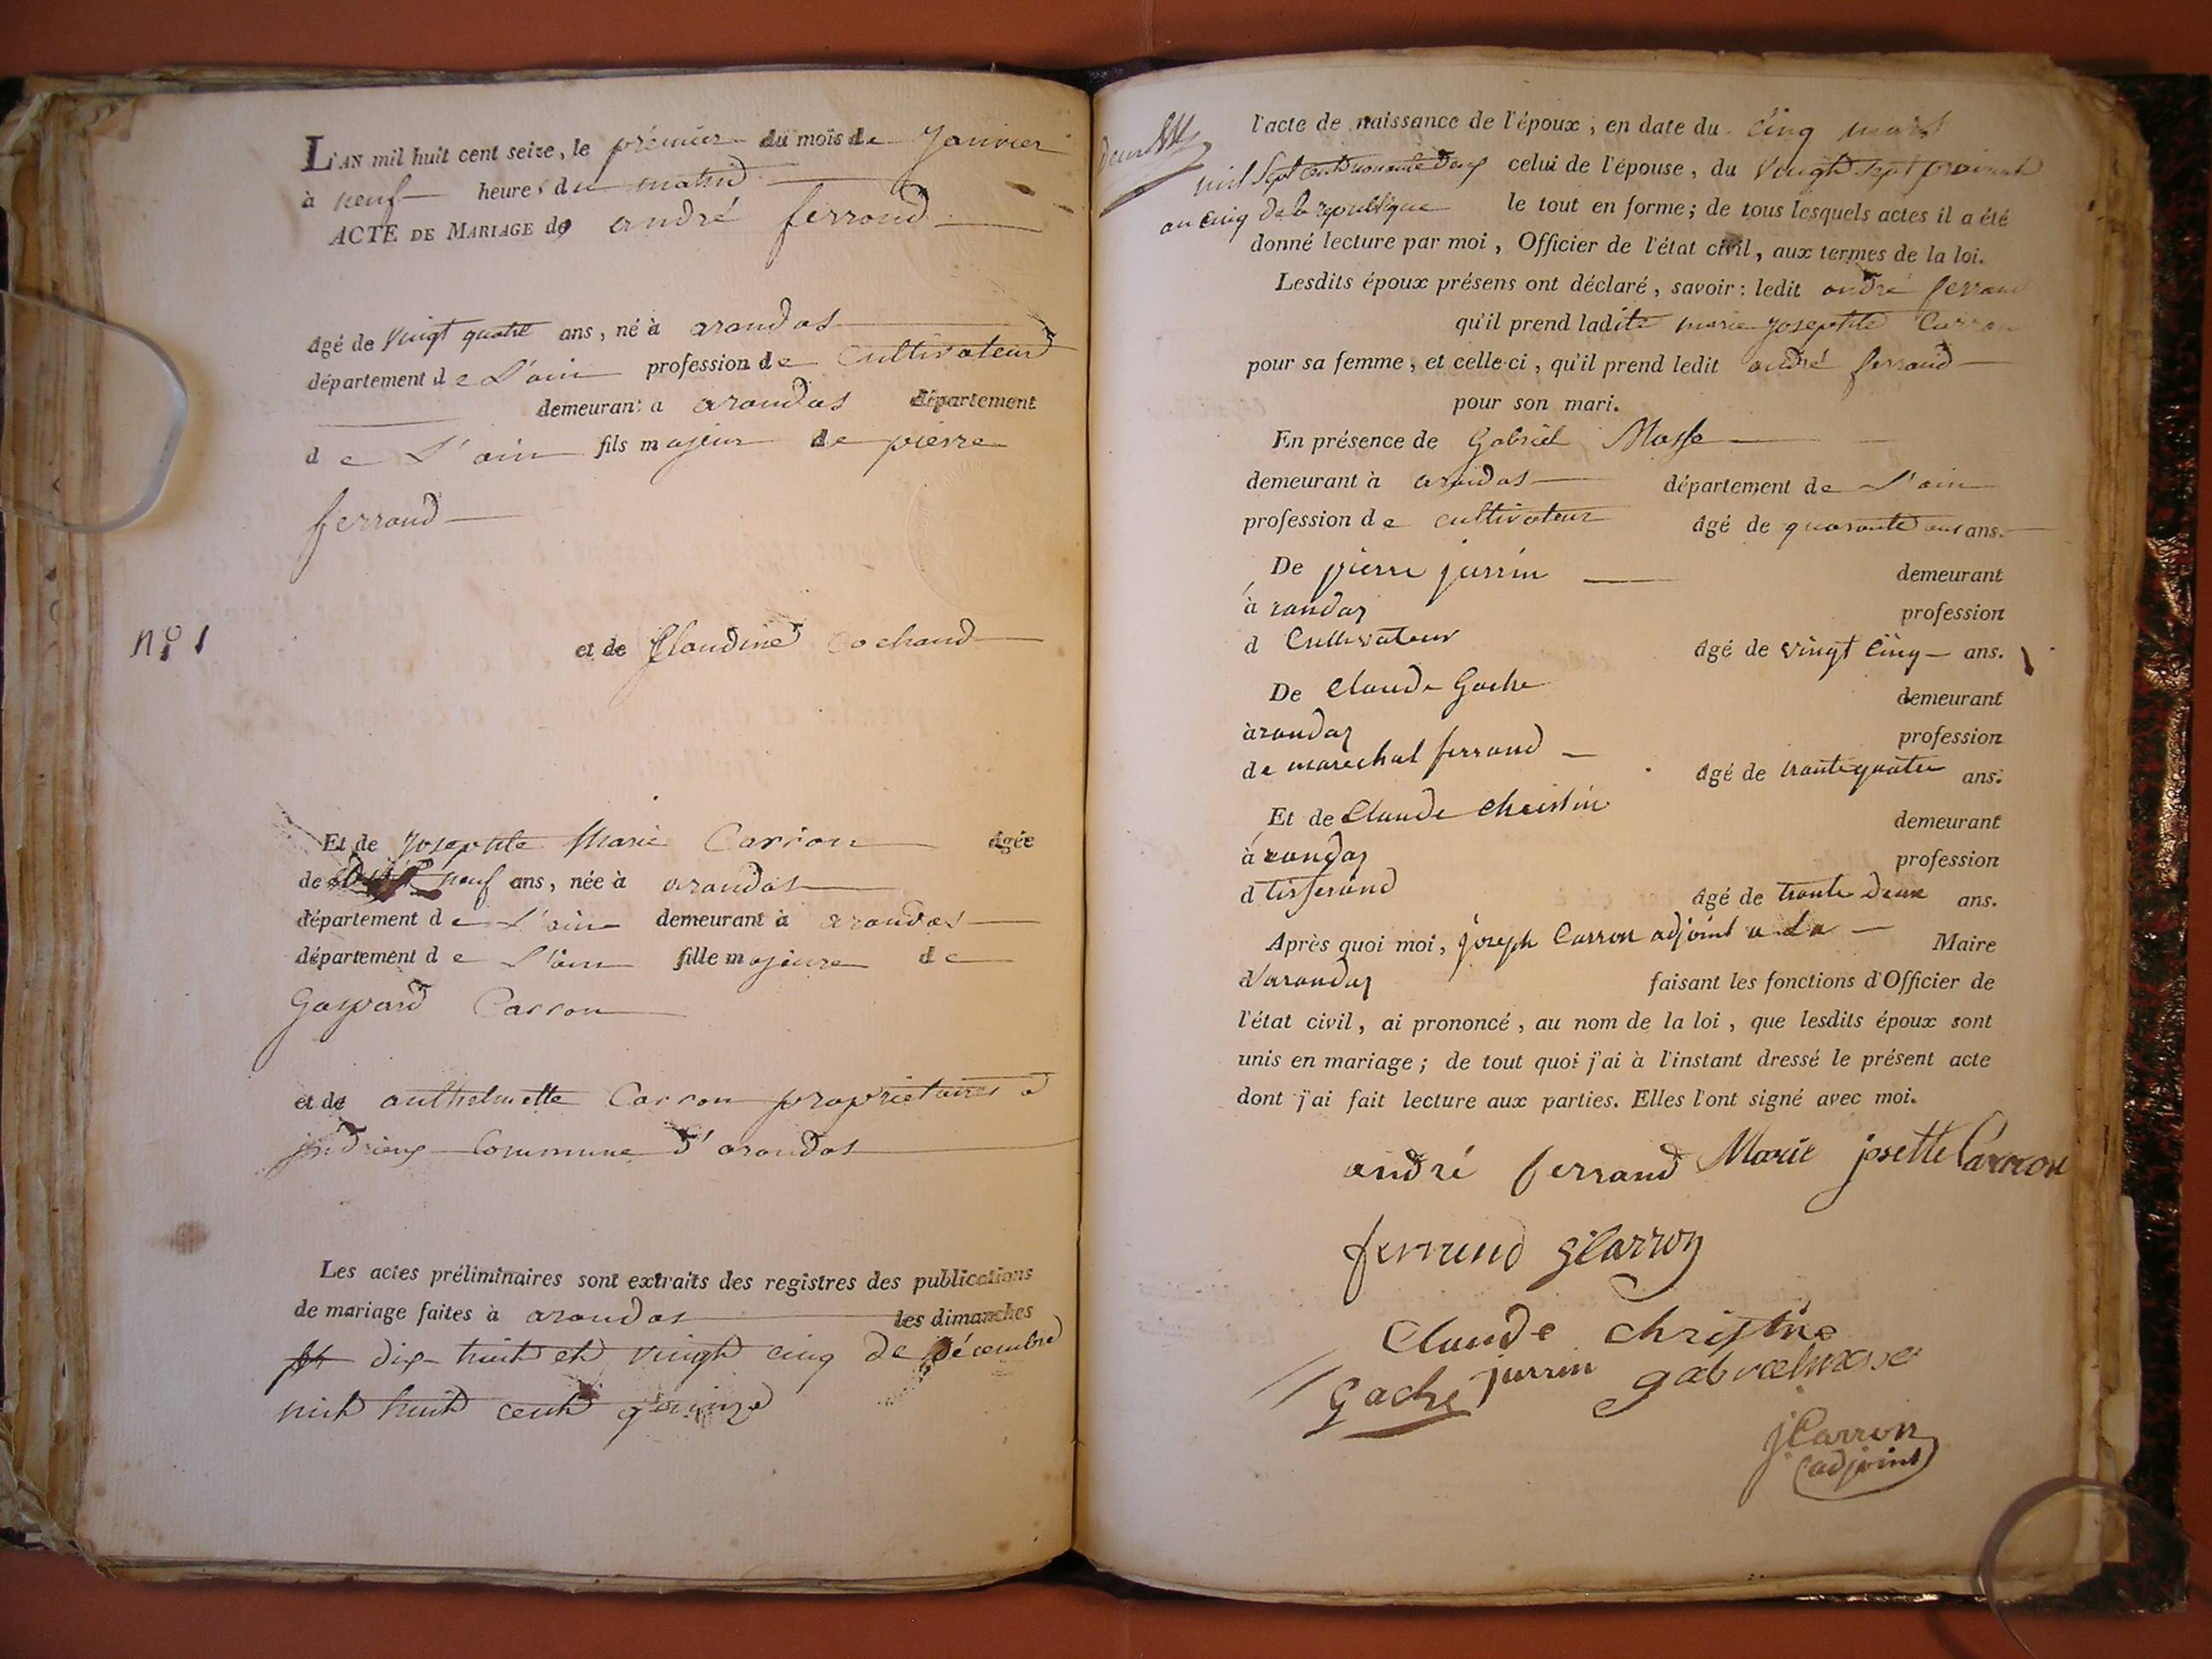 L'AN mil huit cent seize, le premier du mois de Janvier
à neuf heures du matin
ACTE DE MARIAGE de andré ferrand
âgé de vingt quatre ans, né à arandas
département de L'ain profession de Cultivateur
demeurant à arandas département
de L'ain fils majeur de pierre
ferrand
nº 1
et de Claudine Cochand
Et de Josephte Marie Carron âgée
de neuf ans, née à arandas
département de L'ain demeurant à arandas
département de L'ain fille majeure de
Gaspard Carron
et de anthelmette Carron proprietaires a
indrieux Commune d'arandas
Les actes préliminaires sont extraits des registres des publications
de mariage faites à arandas les dimanches
dix-huit et vingt cinq de décembre
mil huit cent quinze
l'acte de naissance de l'époux, en date du cinq mars
mil sept cent nonante deux celui de l'épouse, du vingt sept prairial
an cinq de la republique le tout en forme; de tous lesquels actes il a été
donné lecture par moi, Officier de l'état civil, aux termes de la loi.
Lesdits époux présens ont déclaré, savoir: ledit andré ferrand
qu'il prend ladite marie Josephte Carron
pour sa femme, et celle-ci, qu'il prend ledit andré ferrand
pour son mari.
En présence de Gabriel Masse
demeurant à arandas département de L'ain
profession de cultivateur âgé de quarante ans.
De pierre jurrin demeurant
à randas profession
d Cultivateur âgé de vingt cinq ans.
De Claude Gache demeurant
àrandas profession
de marechal ferrand âgé de trante quatre ans.
Et de Claude christin demeurant
à randas profession
d tisserand âgé de trante deux ans.
Après quoi moi, joseph Carron adjoint a La Maire
d'arandas faisant les fonctions d'Officier de
l'état civil, ai prononcé, au nom de la loi, que lesdits époux sont
unis en mariage; de tout quoi j'ai à l'instant dressé le présent acte
dont j'ai fait lecture aux parties. Elles l'ont signé avec moi.
andré ferrand Marie josette Carron
ferrand gCarron
Claude christine
Gache jurrin gabrielmasse
jCarron
adjoint